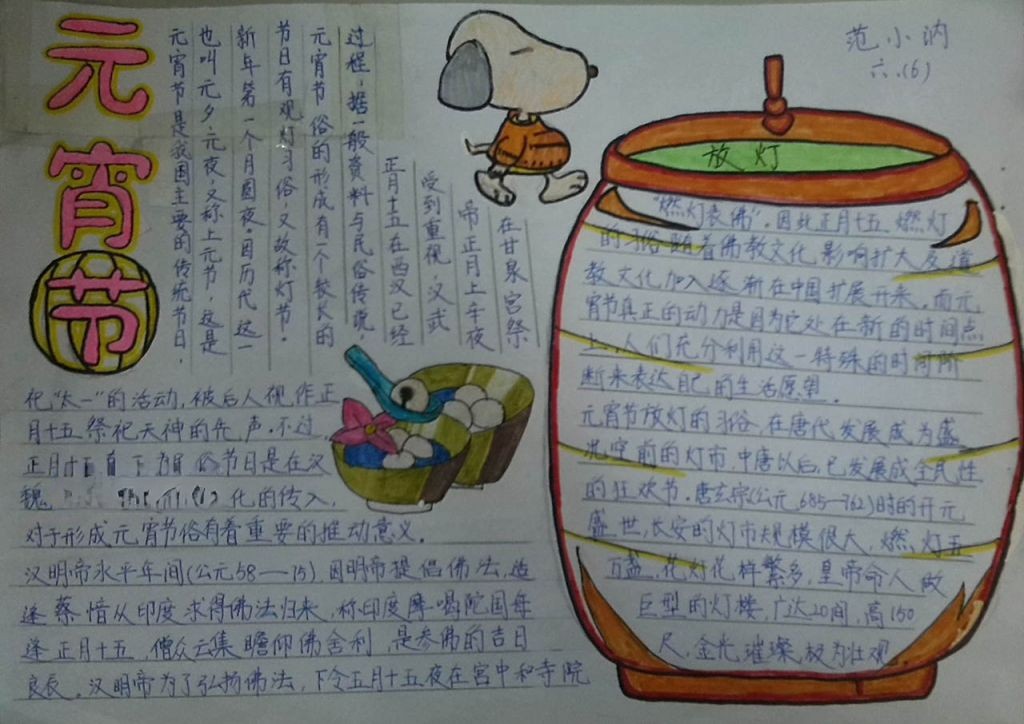 元宵节
范小汭
六.(6)
元宵节是我国主要的传统节日，
也叫元夕元夜，又称上元节，这是
新年第一个月圆夜。因历代这一
节日有观灯习俗，又故称灯节。
元宵节俗的形成有一个较长的
过程，据一般资料与民俗传说，
正月十五在西汉已经
受到重视，汉武
帝正月上辛夜
在甘泉宫祭
祀“太一”的活动，被后人视作正
月十五祭祀天神的先声。不过
正月十五 节日是在汉
魏 化的传入，
对于形成元宵节俗有着重要的推动意义。
汉明帝永平年间(公元58——15)因明帝提倡佛法，适
逢蔡愔从印度求得佛法归来，称印度摩喝陀国每
逢正月十五，僧众云集瞻仰佛舍利，是参佛的吉日
良辰。汉明帝为了弘扬佛法，下令五月十五夜在宫中和寺院
放灯
“燃灯表佛”。因此正月十五燃灯
的习俗随着佛教文化影响扩大及道
教文化加入逐渐在中国扩展开来。而元
宵节真正的动力是因为它处在新的时间点
上，人们充分利用这一特殊的时间阶
断来表达自己的生活愿望。
元宵节放灯的习俗，在唐代发展成为盛
况空前的灯市，中唐以后，已发展成全民性
的狂欢节。唐玄宗(公元685—762)时的开元
盛世，长安的灯市规模很大，燃灯五
万盏，花灯花样繁多，皇帝命人做
巨型的灯楼，广达20间，高150
尺，金光璀璨，极为壮观。